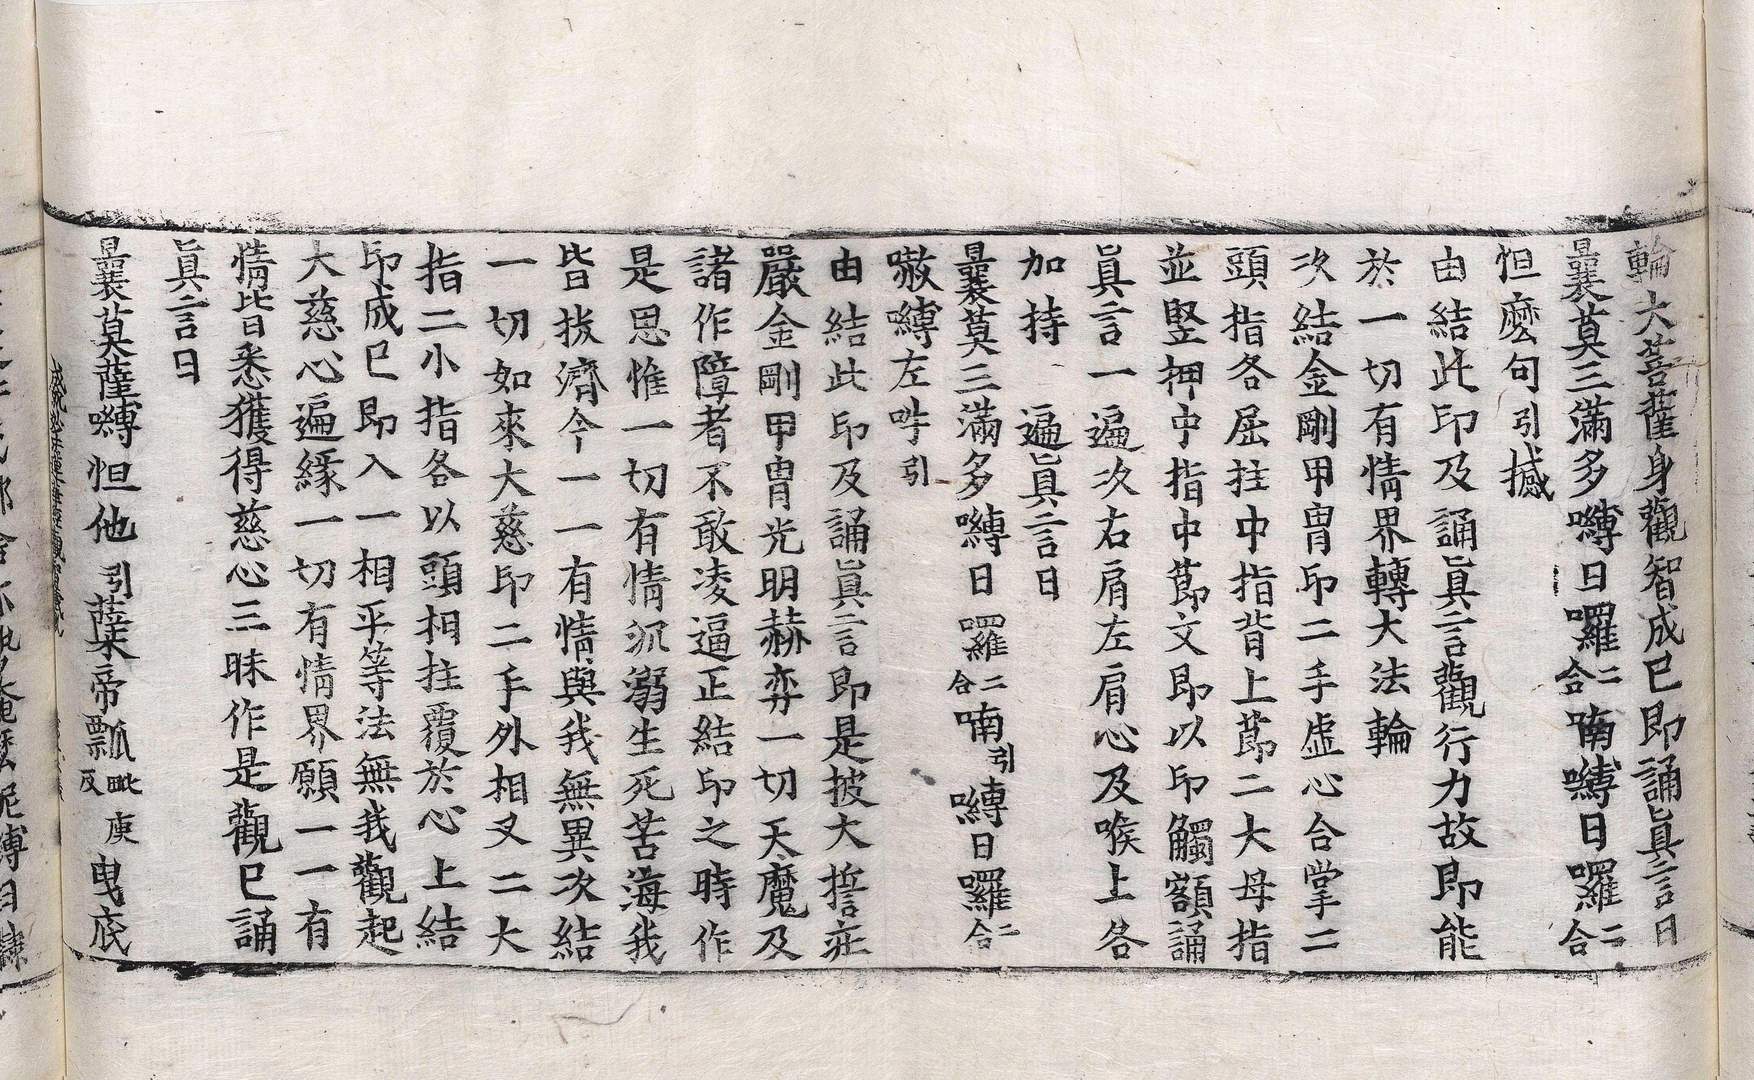 輪大菩薩身觀智成已即誦眞言曰
曩莫三滿多嚩日囉二合喃嚩日囉二合
怛麽句引撼
由結此印及誦眞言觀行力故即能
於一切有情界轉大法輪
次結金剛甲冑印二手虛心合掌二
頭指各屈拄中指背上莭二大母指
並竪押中指中莭文即以印觸額誦
眞言一遍次右肩左肩心及喉上各
加持一遍眞言曰
曩莫三滿多嚩日囉二合喃引嚩日囉二合
㘕嚩左吽引
由結此印及誦眞言即是披大誓莊
嚴金剛甲冑光明赫弈一切天魔及
諸作障者不敢凌逼正結印之時作
是思惟一切有情沉溺生死苦海我
皆拔濟今一一有情與我無異次結
一切如來大慈印二手外相叉二大
指二小指各以頭相拄覆於心上結
印成已即入一相平等法無我觀起
大慈心遍緣一切有情界願一一有
情皆悉獲得慈心三昧作是觀已誦
眞言曰
曩莫薩嚩怛他引蘗帝瓢毗庾反曳底